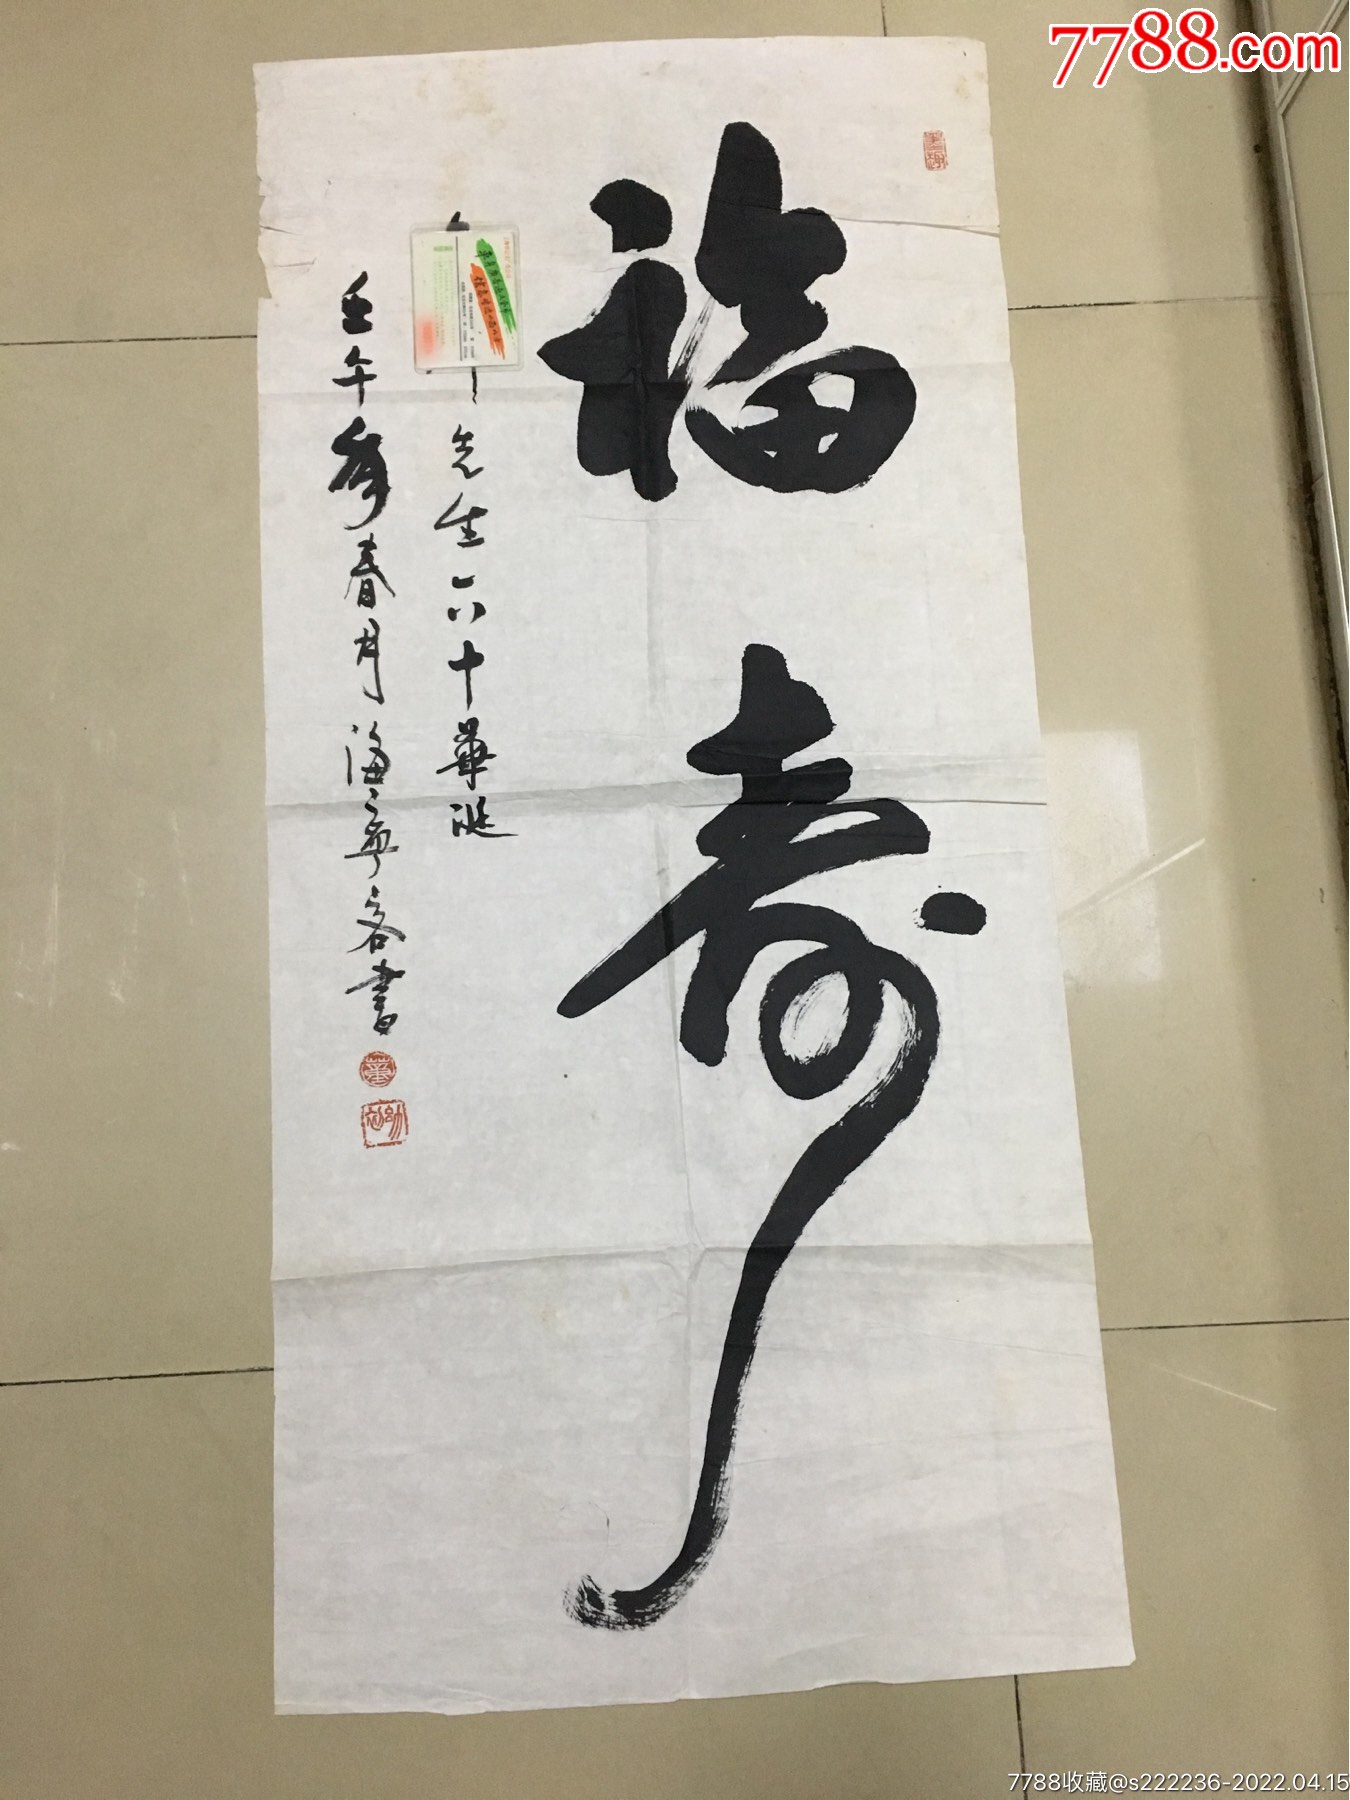 7788.com
福
寿
先生六十華诞
壬午年春月海寧客書
7788收藏@s222236-2022.04.15